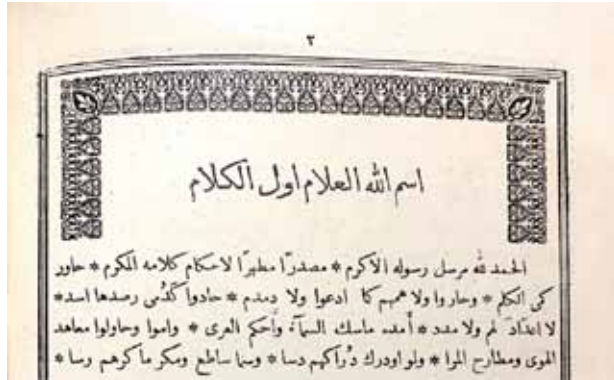 ٢
اسم الله العلام اول الكلام
الحمد لله مرسل رسوله الاكرم * مصدرا مطهرا لاحكام كلامه المكرم * حاور
كى الكلم * وحاروا ولا هممهم كما ادعوا ولا دمدم * حادوا رصدها اسد *
لا لم ولا مدد * أمده ماسك السمآء وأحكم العرى * واموا وحاولوا معاهد
الهوى ومطارح المرا * ولو اودرك دراكهم دسا * وسما ساطع ومكر ماكرهم رسا *